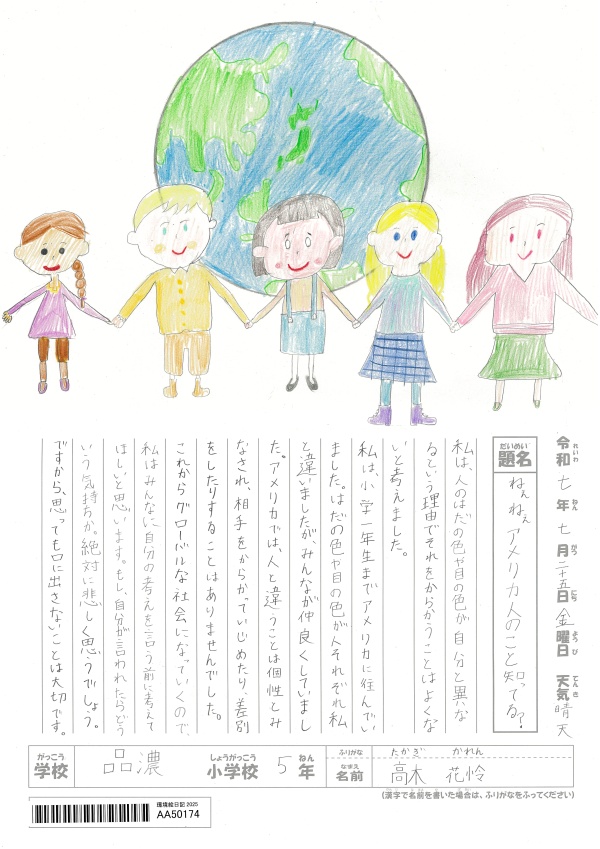 令和七年七月二十五日金曜日 天気晴天
れいわ ねん がつ にち ようび てんき
だいめい
題名 ねぇねぇアメリカ人のこと知ってる?
私は、人のはだの色や目の色が自分と異な
るという理由でそれをからかうことはよくな
いと考えました。
私は、小学一年生までアメリカに住んでい
ました。はだの色や目の色が人それぞれ私
と違いましたが、みんなが仲良くしていまし
た。アメリカでは、人と違うことは個性とみ
なされ、相手をからかっていじめたり、差別
をしたりすることはありませんでした。
これからグローバルな社会になっていくので、
私はみんなに自分の考えを言う前に考えて
ほしいと思います。もし、自分が言われたらどう
いう気持ちか。絶対に悲しく思うでしょう。
ですから、思っても口に出さないことは大切です。
がっこう しょうがっこう ねん
学校 品濃 小学校 5年
ふりがな たかぎ かれん
なまえ
名前 高木 花怜
(漢字で名前を書いた場合は、ふりがなをふってください)
環境絵日記 2025
AA50174